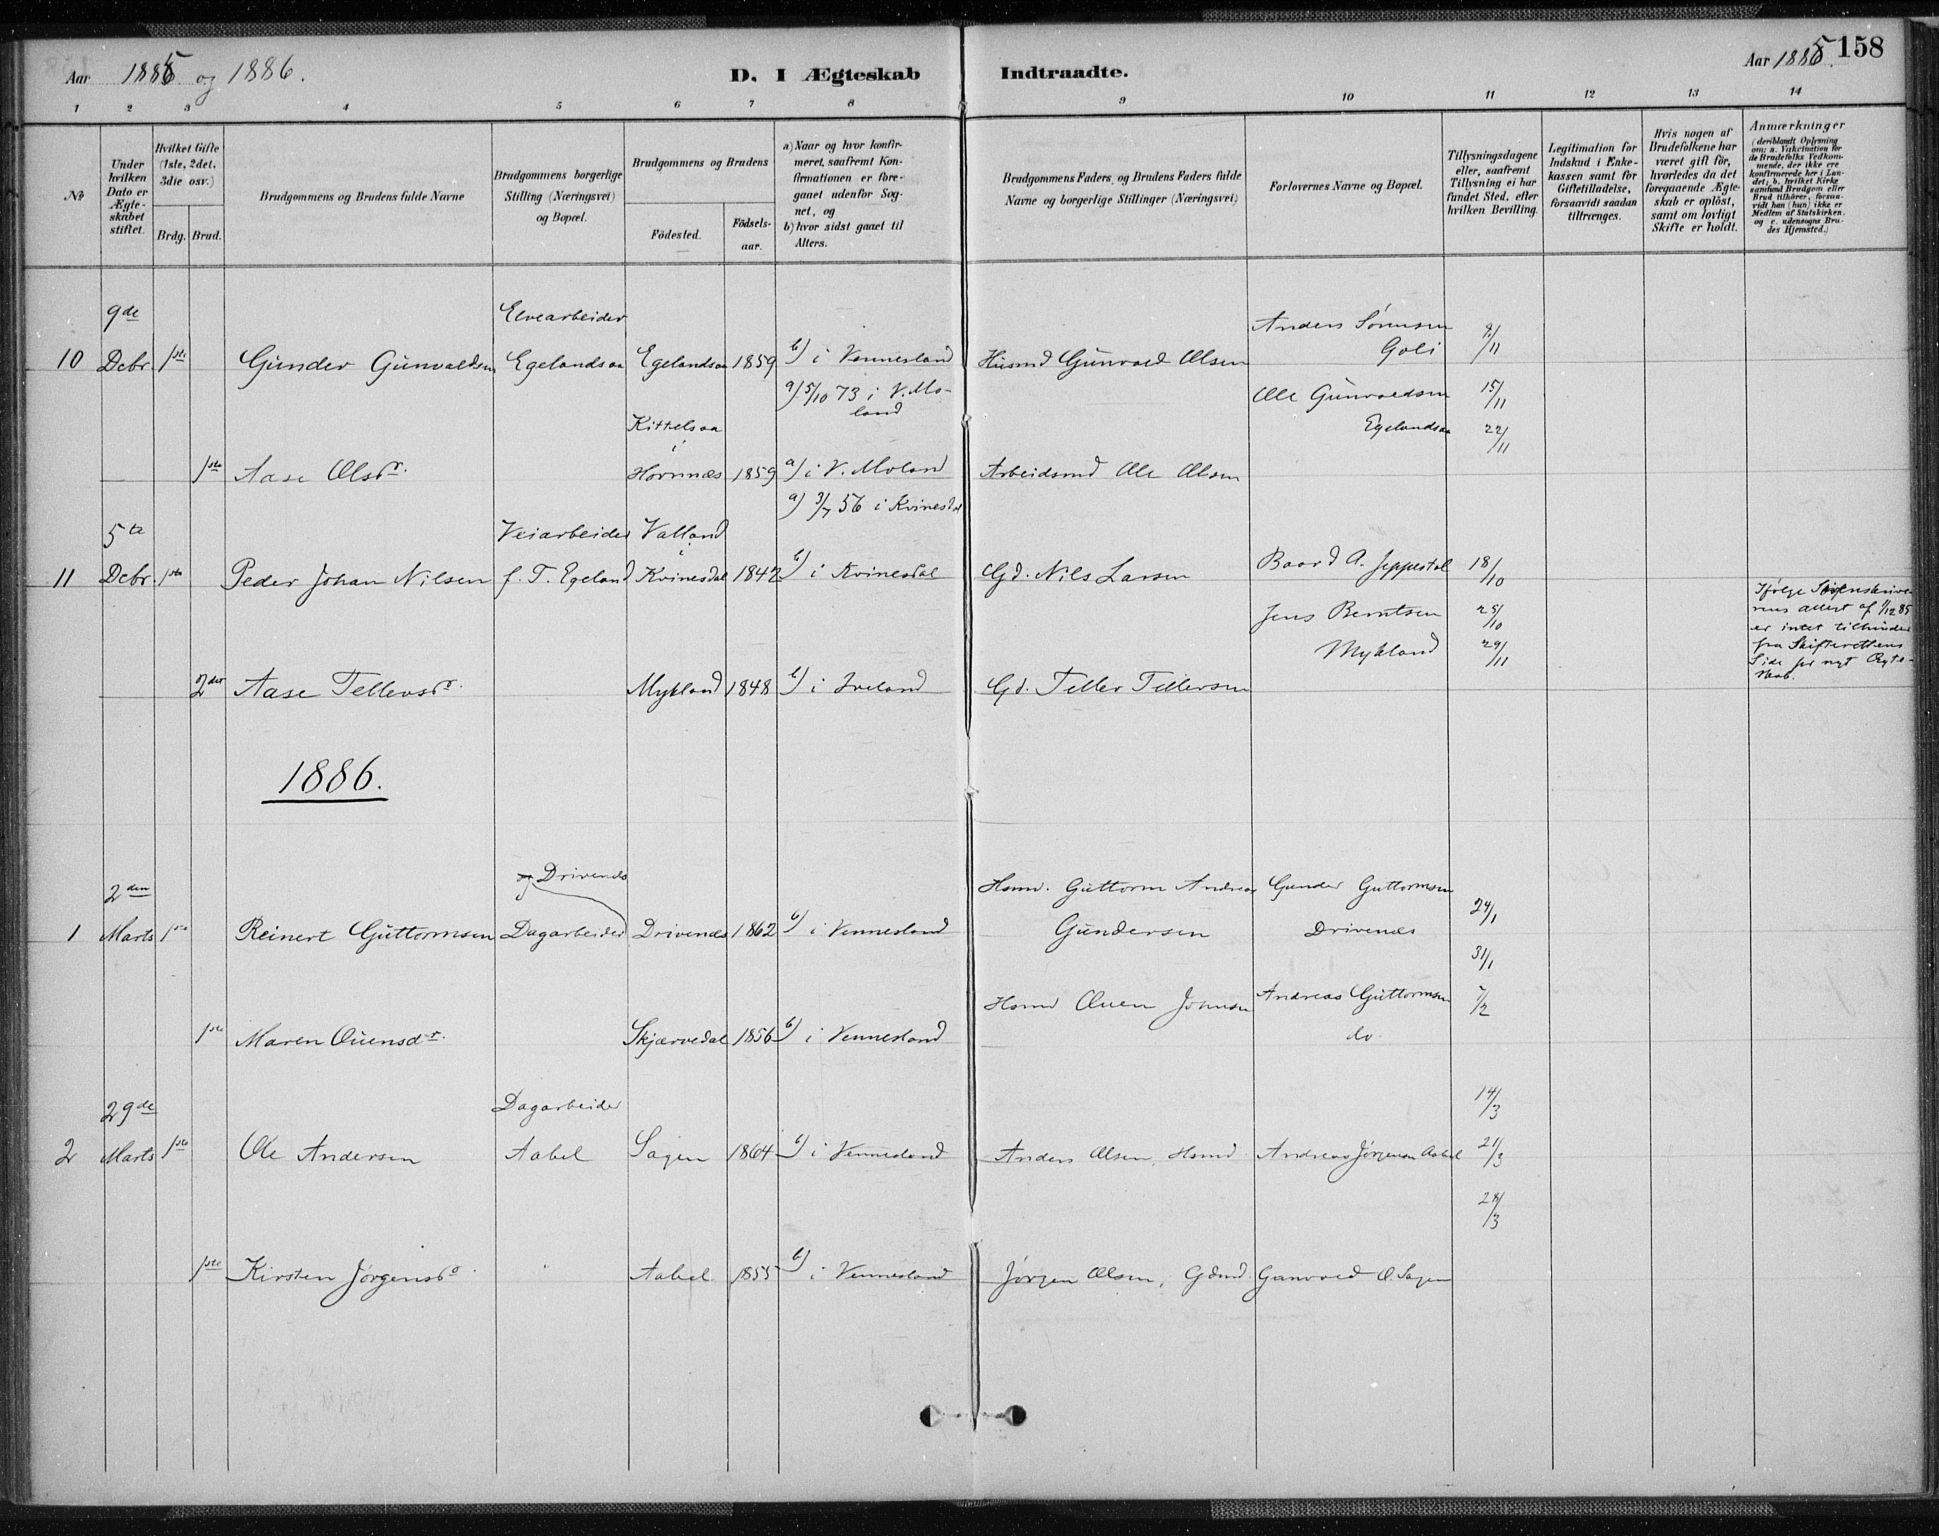 Aar 1885 og 1886.
D. I Ægteskab Indtraadte.
Aar 1885. 158
1 2 3 4 5 6 7 8 9 10 11 12 13 14
No
Under hvilken Dato er Ægteskabet stiftet.
Hvilket Gifte (1ste, 2det, 3die osv.)
Brdg. Brud.
Brudgommens og Brudens fulde Navne
Brudgommens borgerlige Stilling (Næringsvei) og Bopæl.
Brudgommens og Brudens
Födested. Födsels-aar.
a) Naar og hvor konfirmeret, saafremt Konfirmationen er foregaaet udenfor Sognet, og
b) hvor sidst gaaet til Alters.
Brudgommens Faders, og Brudens Faders fulde Navne og borgerlige Stillinger (Næringsvei)
Forlovernes Navne og Bopæl.
Tillysningsdagene eller, saafremt Tillysning ei har fundet Sted, efter hvilken Bevilling.
Legitimation for Indskud i Enkekassen samt for Giftetilladelse, forsaavidt saadan tiltrænges.
Hvis nogen af Brudefolkene har været gift för, hvorledes da det foregaaende Ægteskab er oplöst, samt om lovligt Skifte er holdt.
Anmærkninger (deriblandt Oplysning om: a. Vakcination for de Brudefolks Vedkommende, der ikke ere konfirmerede her i Landet; b. hvilket Kirkesamfund Brudgom eller Brud tilhører, forsaavidt han (hun) ikke er Medlem af Statskirken, og c. udensogns Brudes Hjemsted.)
9de Elvearbeider Anders Sörensen 8/11
10 Debr. 1ste Gunder Gunvaldsen Egelandsaa Egelandsaa 1859 b) i Vennesland Husmd Gunvald Olsen Goli
a) 5/10 73 i V. Moland Ole Gunvaldsen 15/11
Kittelsaa i Egelandsaa 22/11
1ste Aase Olsdr. Hornnæs 1859 a) i V. Moland Arbeidsmd Ole Olsen
a) 3/7 56 i Kvinesdal
5te Veiarbeider Valland i
11 Debr. 1ste Peder Johan Nilsen f. T. Egeland Kvinesdal 1842 b) i Kvinesdal Gd. Nils Larsen Baard A. Jeppestøl 18/10
Jens Berntsen 25/10
Mykland 29/11
Ifølge Sorenskriverens attest af 1/12 85 er intet tilhinder fra Skifterettens Side for nyt Ægteskab.
2det Aase Tellevsdr. Mykland 1848 b) i Iveland Gd. Tellef Tellefsen
1886.
2den og Drivenes Hsmd. Guttorm Andreas Gunder Guttormsen 24/1
1 Marts 1ste Reinert Guttormsen Dagarbeider Drivenes 1862 b) i Vennesland Gundersen Drivenes
31/1
Hsmd Ouen Johnsen Andreas Guttormsen 7/2
1ste Maren Ouensdr. Skjærvedal 1856 b) i Vennesland do.
29de Dagarbeider 14/3
2 Marts 1ste Ole Andersen Aabel Sagen 1864 b) i Vennesland Anders Olsen, Hsmd. Andreas Jørgensen Aabel 21/3
28/3
1ste Kirsten Jørgensdr. Aabel 1855 b) i Vennesland Jørgen Olsen, Gdmd. Gunvald O. Sagen